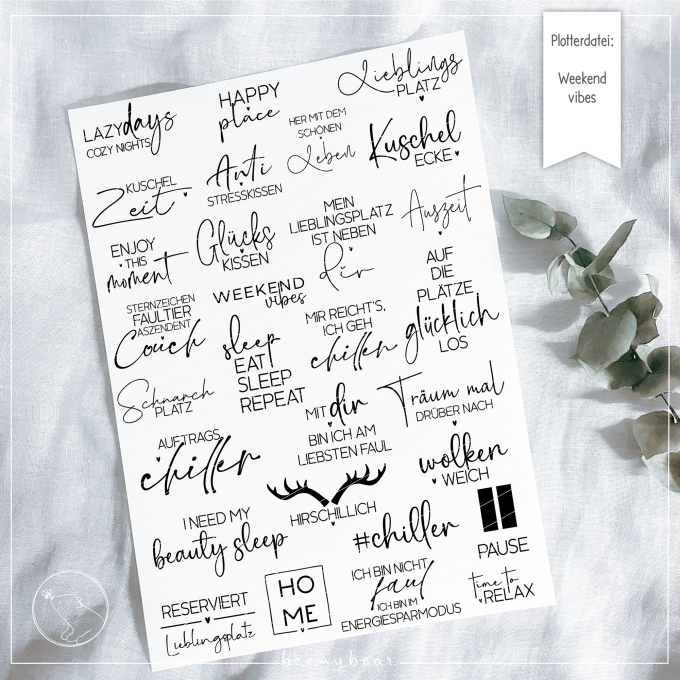 Plotterdatei:
Weekend
vibes
LAZY days
COZY NIGHTS
HAPPY
place
Lieblings
PLATZ
HER MIT DEM
SCHÖNEN
Leben
Kuschel
ECKE
KUSCHEL
Zeit
Anti
STRESSKISSEN
MEIN
LIEBLINGSPLATZ
IST NEBEN
dir
Auszeit
ENJOY
THIS
moment
Glücks
KISSEN
WEEKEND
vibes
AUF
DIE
PLÄTZE
glücklich
LOS
STERNZEICHEN
FAULTIER
ASZENDENT
Couch
sleep
EAT
SLEEP
REPEAT
MIR REICHT'S,
ICH GEH
chillen
Schnarch
PLATZ
MIT dir
BIN ICH AM
LIEBSTEN FAUL
Träum mal
DRÜBER NACH
AUFTRAGS
chiller
wolken
WEICH
HIRSCHILLICH
I NEED MY
beauty sleep
#chiller
PAUSE
RESERVIERT
Lieblingsplatz
HO
ME
ICH BIN NICHT
faul
ICH BIN IM
ENERGIESPARMODUS
time to
RELAX
beemybear